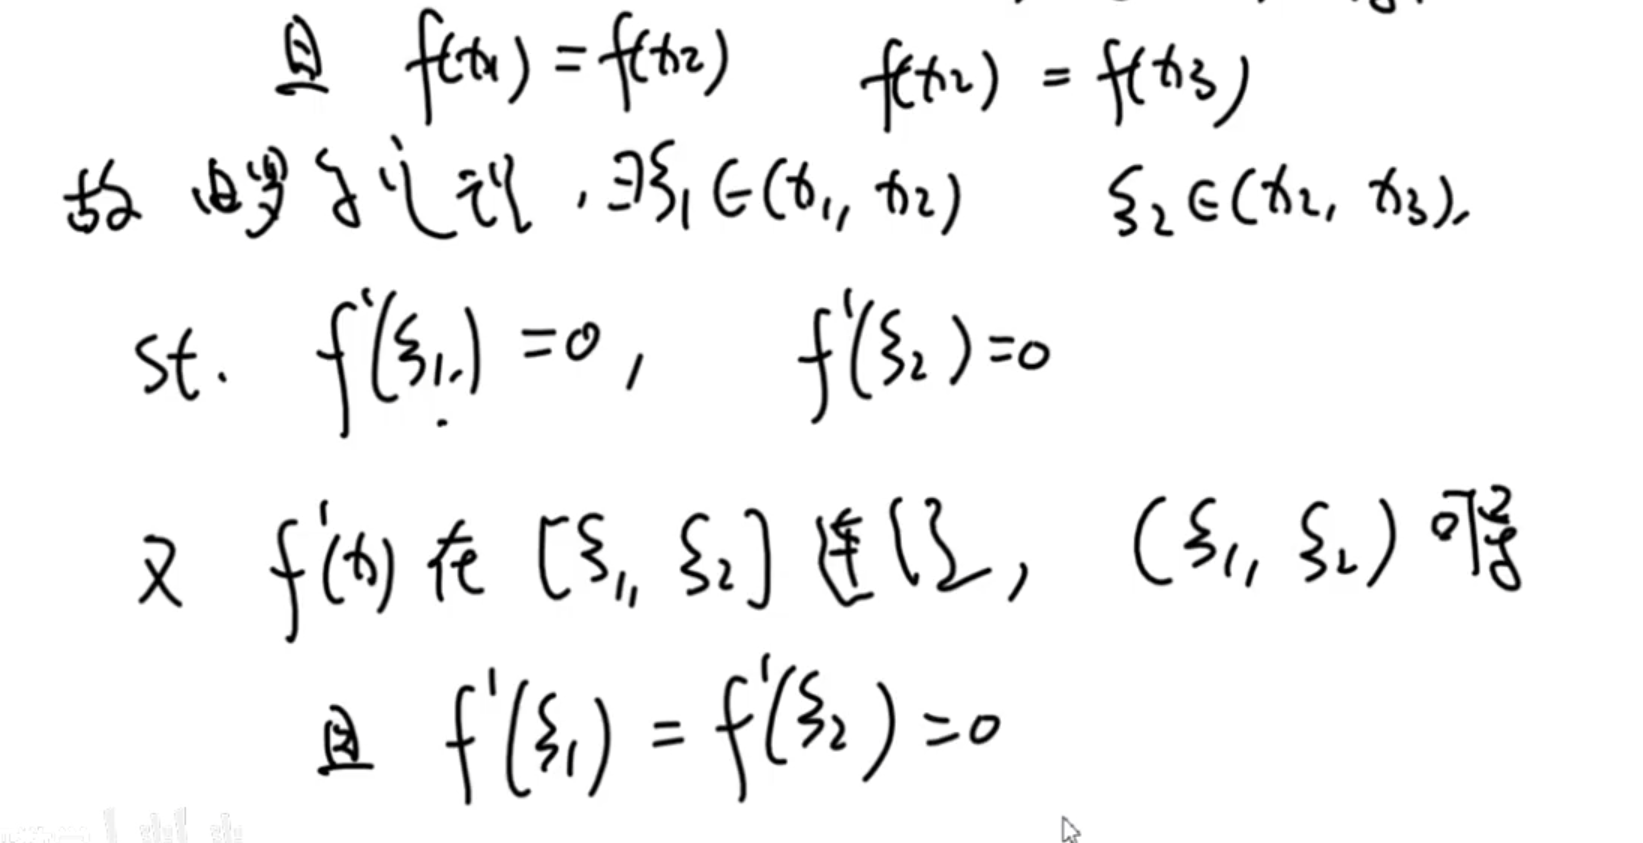 且 f(x₁) = f(x₂) f(x₂) = f(x₃)
故 由罗尔定理, ∃ξ₁∈(x₁, x₂) ξ₂∈(x₂, x₃),
st. f'(ξ₁) = 0, f'(ξ₂) = 0
又 f'(x) 在 [ξ₁, ξ₂] 连续, (ξ₁, ξ₂) 可导
且 f'(ξ₁) = f'(ξ₂) = 0